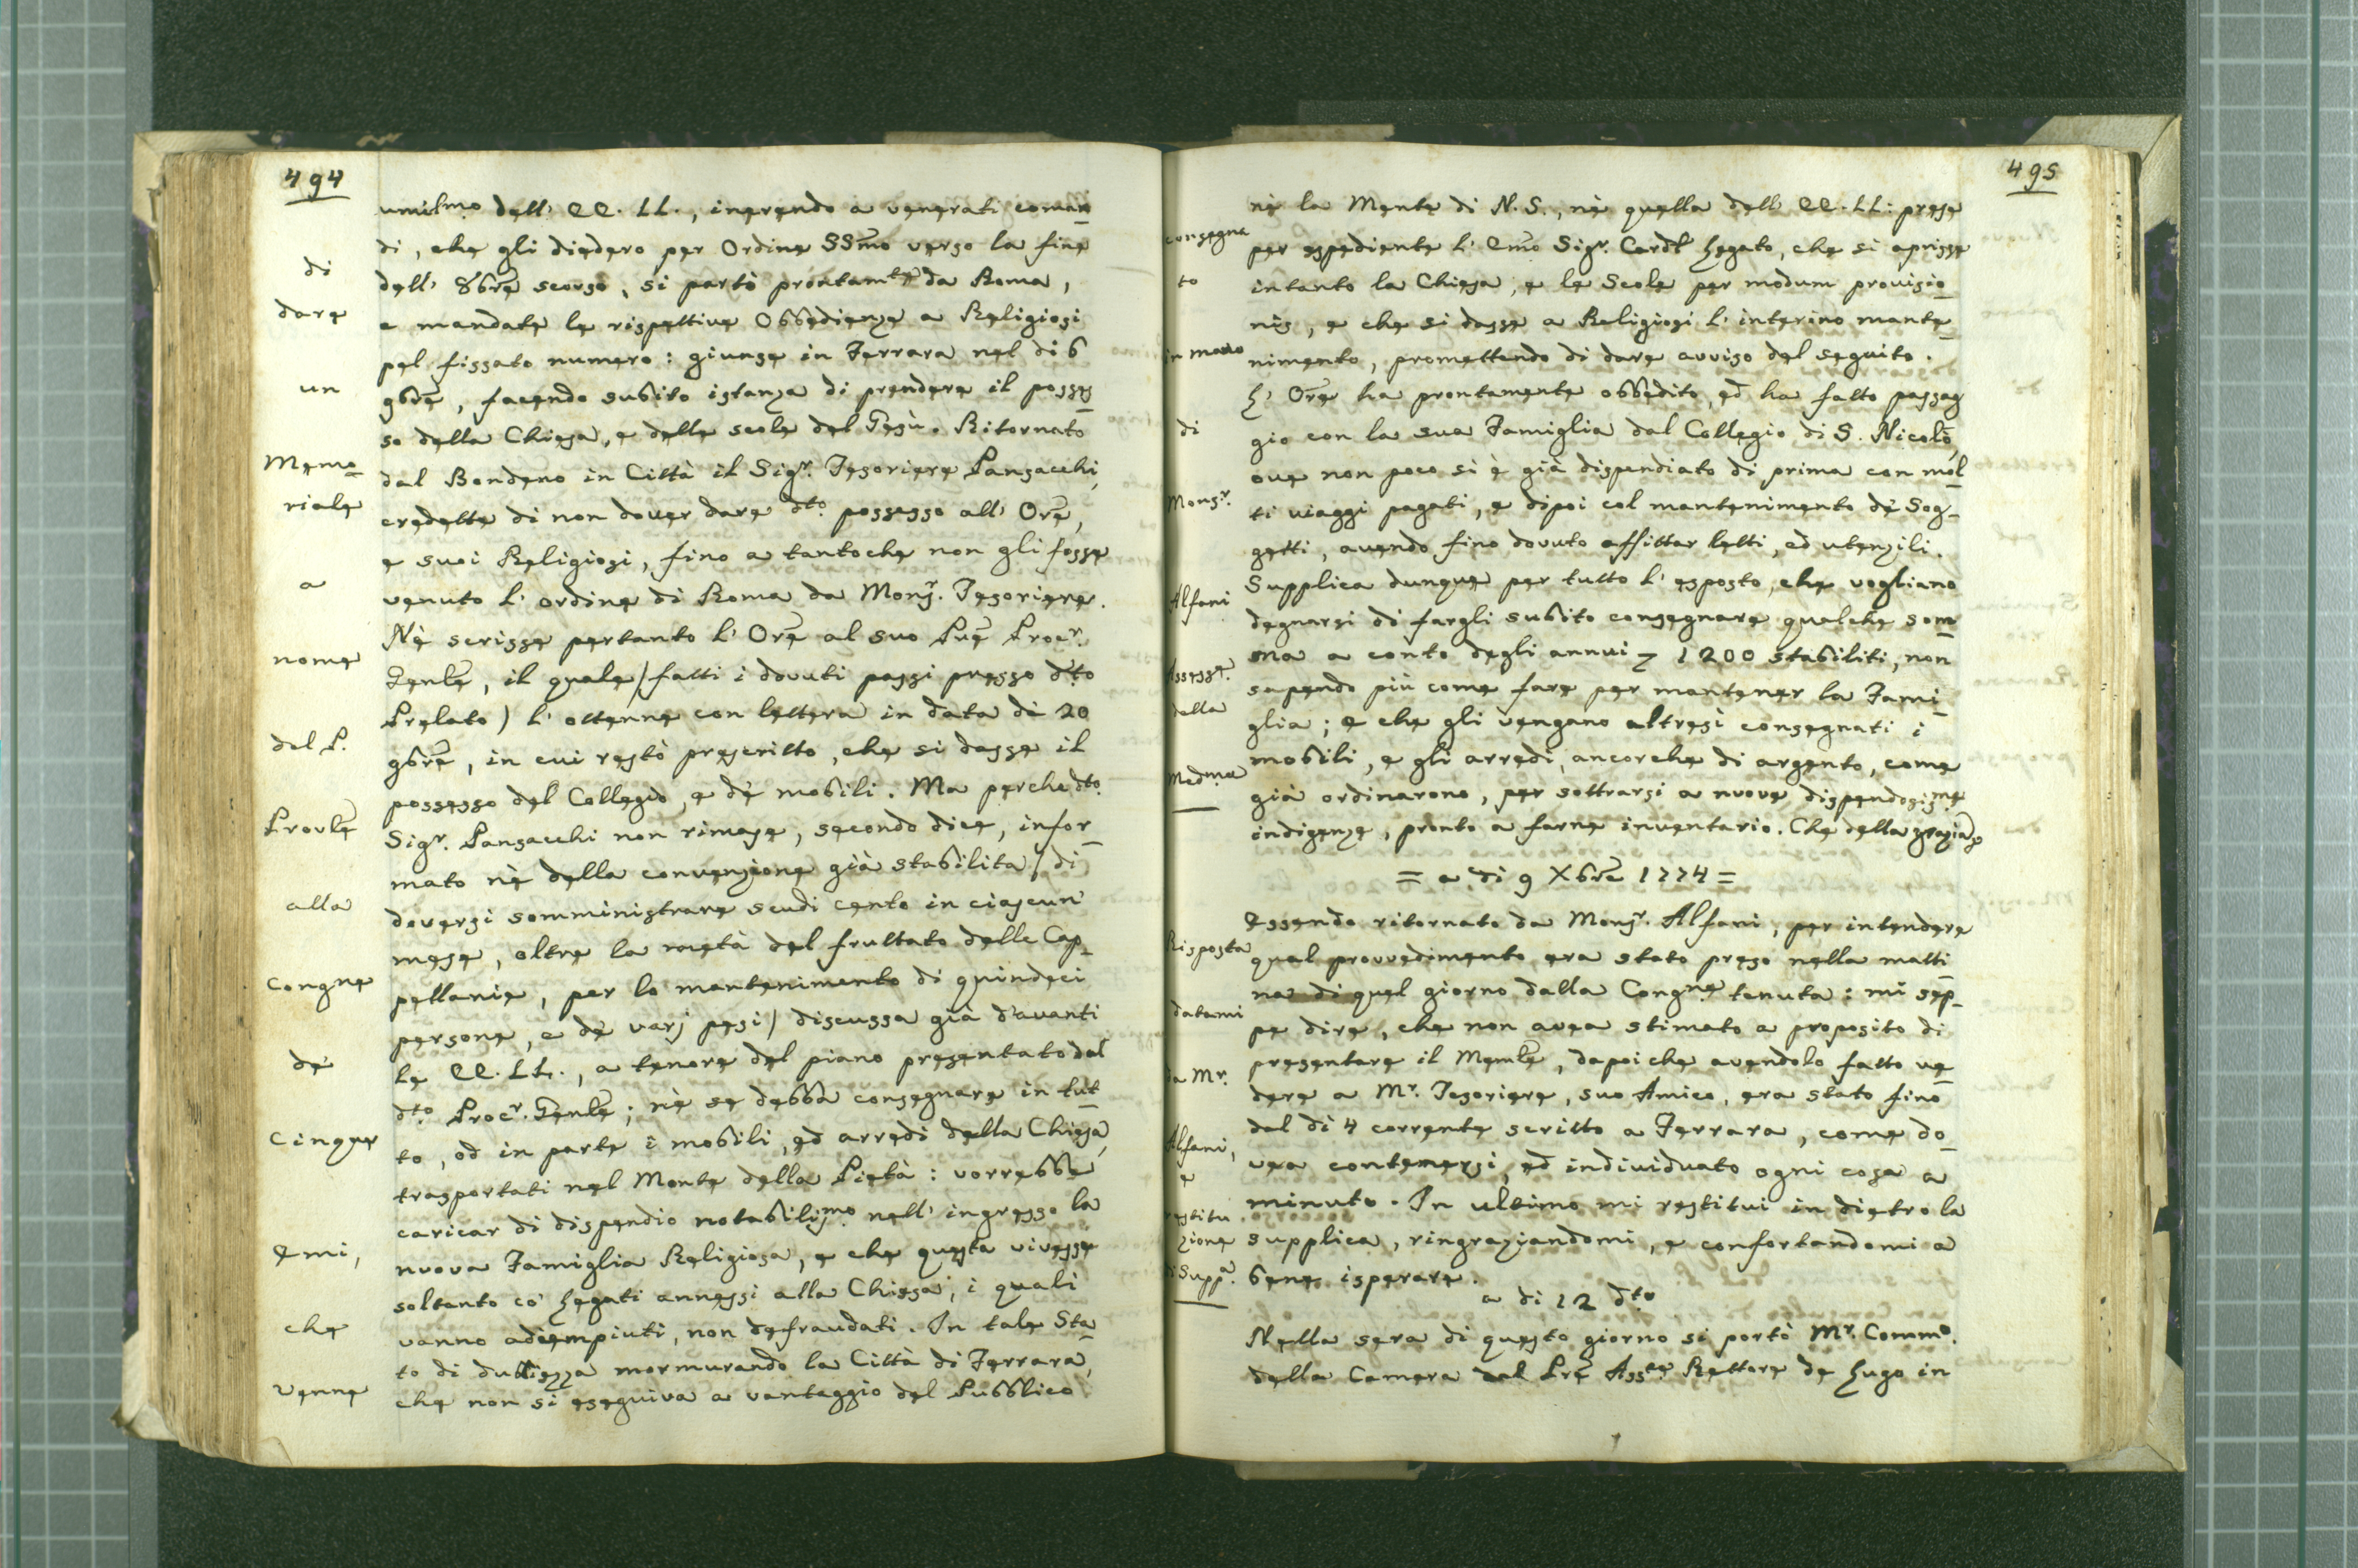 494
umilmo dell' EE. LL., inerendo a venerati coman
di, che gli diedero per Ordine SSmo verso la fine
dell' 8bre scorso, si partò prontamte da Roma,
e mandate le rispettive Obbedienze a Religiosi
pel fissato numero: giunse in Ferrara nel di 6
9bre, facendo subito istanza di prendere il posses
so della Chiesa, e delle scole del Gesù. Ritornato
dal Bondeno in Città il Sigr. Tesoriere Pansacchi,
credette di non dover dare dto. possesso all' Ore,
e suoi Religiosi, fino a tantoche non gli fosse
venuto l' ordine di Roma da Monsr. Tesoriere.
Nè scrisse pertanto l' Ore al suo Pre Procr.
Genle, il quale /fatti i dovuti passi presso dto
Prelato) l' ottenne con lettera in data di 20
9bre, in cui restò prescritto, che si dasse il
possesso del Collegio, e dè mobili. Ma perche dto.
Sigr. Pansacchi non rimase, secondo dice, infor
mato nè della convenzione già stabilita / di
doversi somministrare scudi cento in ciascun'
mese, oltre la metà del fruttato delle Cap
pellanie, per lo mantenimento di quindeci
persone, e dè varj pesi) discussa già d'avanti
le EE. LL., a tenore del piano presentato dal
dto. Procr. Genle; nè se debba consegnare in tut
to, od in parte i mobili, ed arredi della Chiesa,
trasportati nel Monte della Pietà: vorrebbe
caricar di dispendio notabilismo nell' ingresso la
nuova Famiglia Religiosa, e che questa vivesse
soltanto co' Legati annessi alla Chiesa, i quali
vanno adiempiuti, non defraudati. In tale Sta
to di dubbiezza mormurando la Città di Ferrara,
che non si eseguiva a vantaggio del Pubblico
di
dare
un
Memo
riale
a
nome
del P.
Provle
alla
Congne
dè
Cinque
Emi,
che
venne
495
nè la Mente di N. S., nè quella dell' EE. LL: prese
per espediente l' Emo Sigr. Cardl Legato, che si aprisse
intanto la Chiesa, e le Scole per modum provisio
nis, e che si dasse a Religiosi l' interino mante
nimento, promettendo di dare avviso del seguito.
L' Ore ha prontamente obbedito, ed ha fatto passag
gio con la sua Famiglia dal Collegio di S. Nicolò,
ove non poco si è già dispendiato di prima con mol
ti viaggi pagati, e dipoi col mantenimento dè Sog
getti, avendo fino dovuto affittar letti, ed utensili.
Supplica dunque per tutto l' esposto, che vogliano
degnarsi di fargli subito consegnare qualche som
ma a conto degli annui 1200 stabiliti, non
sapendo più come fare per mantener la Fami
glia; e che gli vengano altresì consegnati i
mobili, e gli arredi, ancorche di argento, come
già ordinarono, per sottrarsi a nuove dispendosisme
indigenze, pronto a farne inventario. Che della grazia
consegna
to
in mano
di
Monsr.
Alfani
Assesse.
della
Medma
= a di 9 Xbre 1774 =
Essendo ritornato da Monsr. Alfani, per intendere
qual provvedimento era stato preso nella matti
na di quel giorno dalla Congne tenuta: mi sep
pe dire, che non avea stimato a proposito di
presentare il Memle, dapoi che avendolo fatto ve
dere a Mr. Tesoriere, suo Amico, era stato fino
dal di 4 corrente scritto a Ferrara, come do
vea contenersi, ed individuato ogni cosa a
minuto. In ultimo mi restitui indietro la
supplica, ringraziandomi, e confortandomi a
bene isperare.
Risposta
datami
da Mr.
Alfani,
e
restitu
zione
di Suppa.
a di 12 dto
Nella sera di questo giorno si portò Mr. Commo.
della Camera dal Pre Asste Rettore de Lugo in